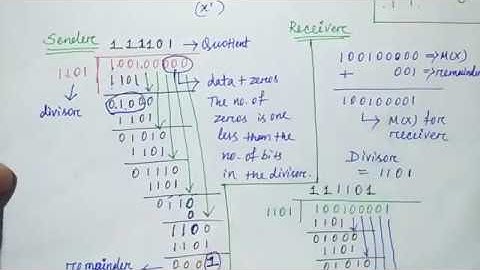 (x')
Sender
111101 → Quotient
1101
100100000
1101
01000
1101
1010
1101
1110
1101
0110
0
1100
1101
0001
divisor
data + zeros
The no. of
zeros is one
less them the
no. of bits
in the divisor.
remainder
Receiver
100100000 ⇒ M(X)
+ 001 ⇒ remainder
100100001
M(X) for
receiver
Divisor
= 1101
111101
1101
100100001
1101
01000
1101